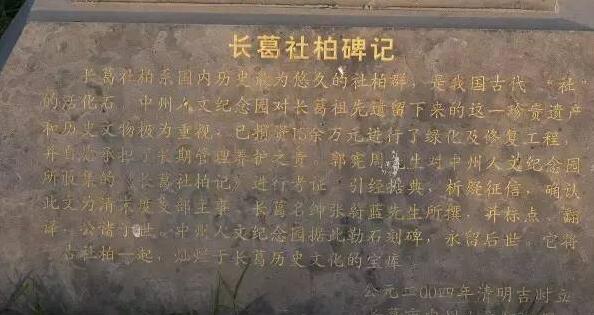 长葛社柏碑记
长葛社柏系国内历史最为悠久的社柏群，是我国古代“社”
的活化石。中州人文纪念园对长葛祖先遗留下来的这一珍贵遗产
和历史文物极为重视，已拥资15余万元进行了绿化及修复工程，
并自觉承担了长期管理养护之责。郭宪周先生对中州人文纪念园
所收集的《长葛社柏记》进行考证，引经据典，析疑征信，确认
此文为清末度支部主事、长葛名绅张蔚蓝先生所撰，并标点、翻
译，公诸于世。中州人文纪念园据此勒石刻碑，永留后世。它将
古社柏一起，灿烂于长葛历史文化的宝库
公元二00四年清明吉时立
长葛市中州人